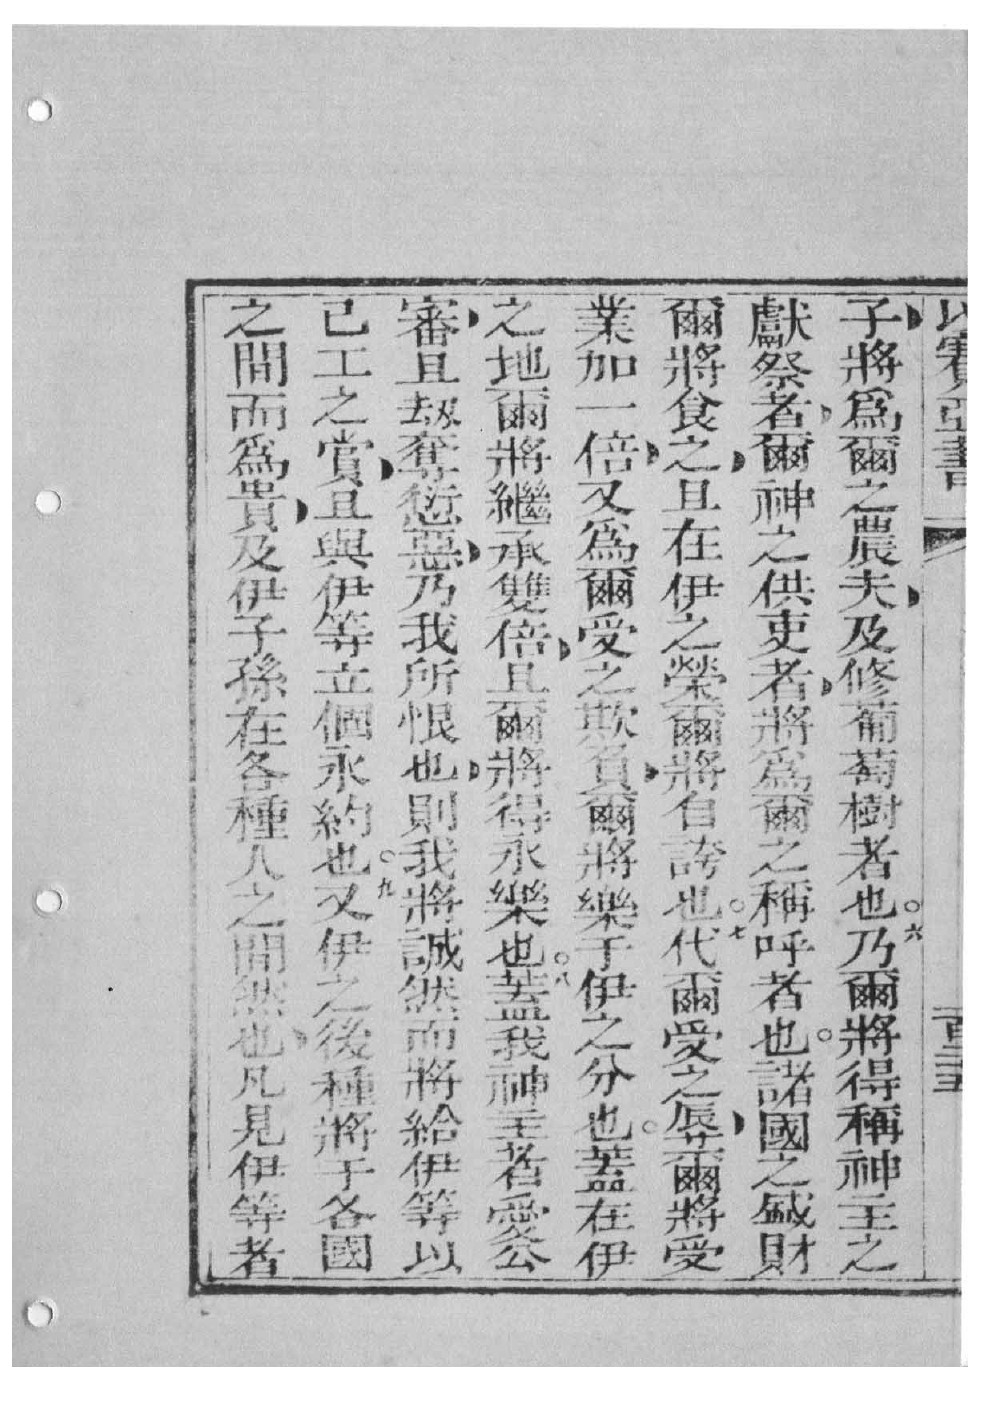 以賽亞書 百五
子將爲爾之農夫及修葡萄樹者也○六乃爾將得稱神主之
獻祭者爾神之供吏者將爲爾之稱呼者也○諸國之盛財
爾將食之且在伊之榮爾將自誇也○七代爾受之辱爾將受
業加一倍又爲爾受之欺負爾將樂于伊之分也○蓋在伊
之地爾將繼承雙倍且爾將得永樂也○八蓋我神主者愛公
審且刼奪愆惡乃我所恨也則我將誠然而將給伊等以
已工之賞且與伊等立個永約也○九又伊之後種將于各國
之間而爲貴及伊子孫在各種人之間然也凡見伊等者